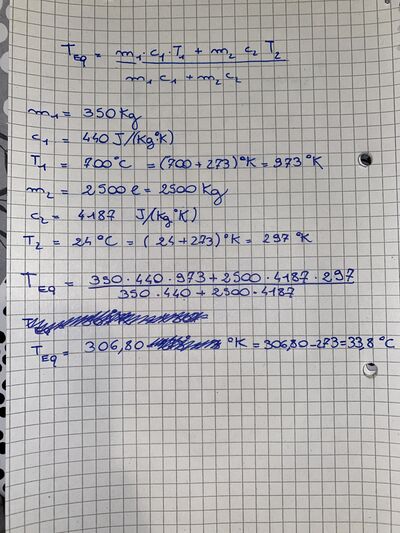 T_Eq = m₁·c₁·T₁ + m₂ c₂ T₂
m₁ c₁ + m₂ c₂
m₁ = 350 Kg
c₁ = 440 J/(Kg°K)
T₁ = 700°C = (700+273)°K = 973°K
m₂ = 2500 ℓ = 2500 Kg
c₂ = 4187 J/(Kg°K)
T₂ = 24°C = (24+273)°K = 297°K
T_Eq = 350·440·973+2500·4187·297
350·440+2500·4187
T_Eq = 306,80 °K = 306,80-273=33,8 °C